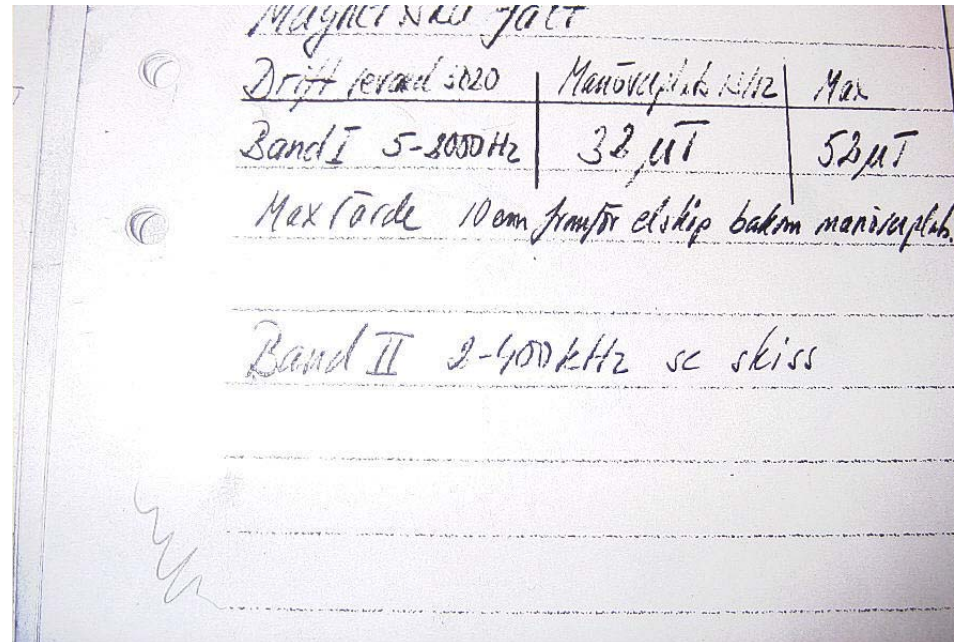 Magnetiska fält
Drift 5020 | Manöverplats | Max
Band I 5-2000Hz | 32 µT | 52µT
Max värde 10cm framför elskåp bakom manöverplats.
Band II 2-400kHz se skiss